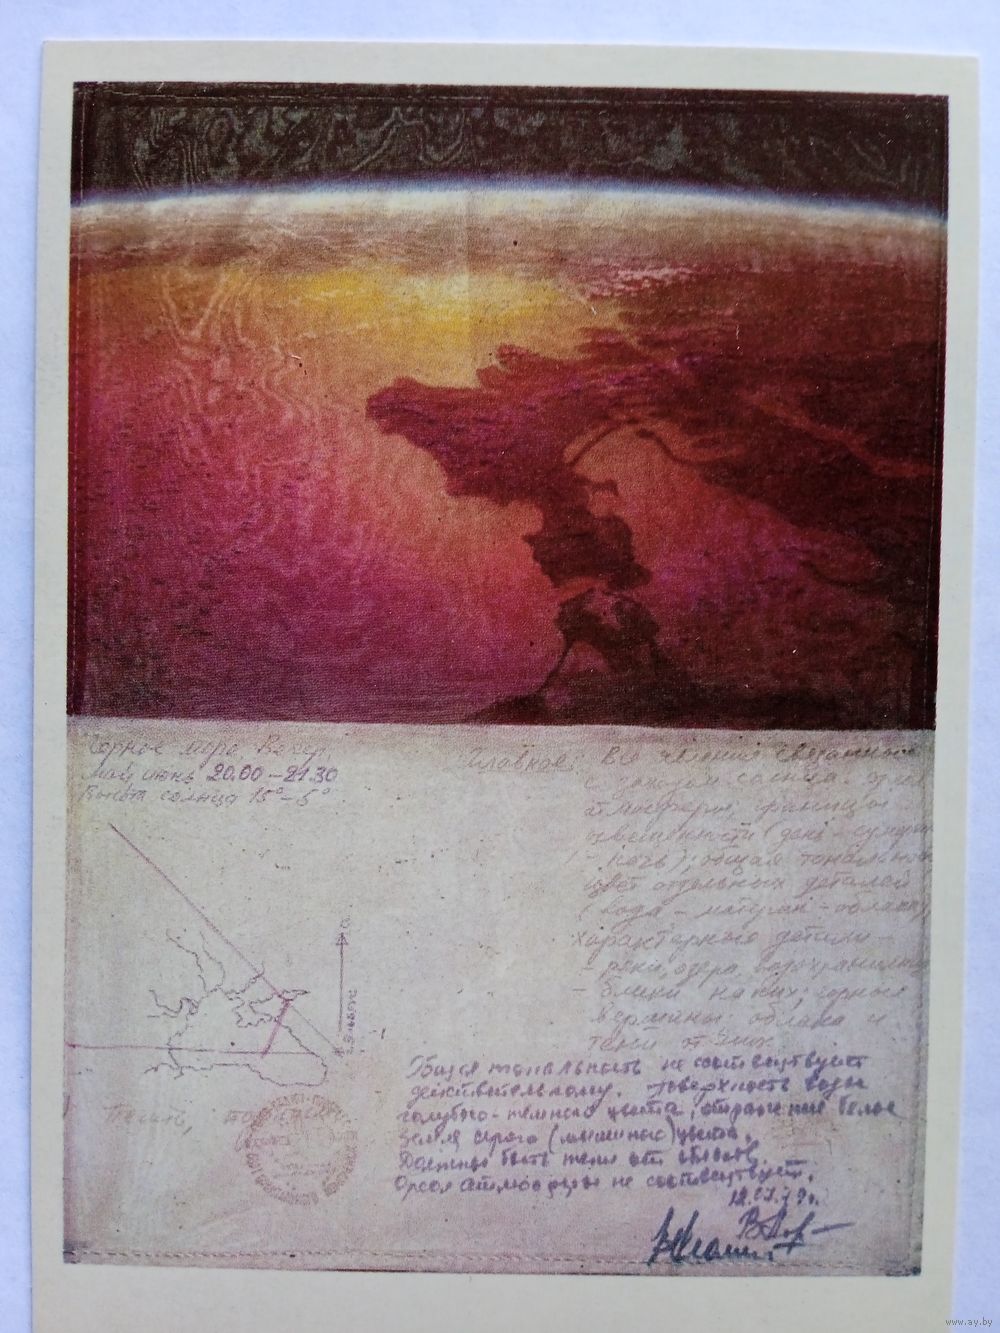 Черное море. Вечер.
Май июнь 20.00 – 21.30
Высота солнца 15° – 5°
Главное: Все явления связанные
с заходом солнца.
атмосферы, границы
освещенности (день – сумерки
– ночь); общая тональность
цвет отдельных деталей
(вода – материк – облака)
характерные детали –
– реки, озера, водохранилища
– блики на них; горные
вершины; облака и
тени от них
С
Общая тональность не соответствует
действительному. Поверхность воды
голубого-темного цвета, отражение белое
Земля серого (мышиного) цвета.
Должны быть тени от облаков.
Ореол атмосферы не соответствует.
www.ay.by